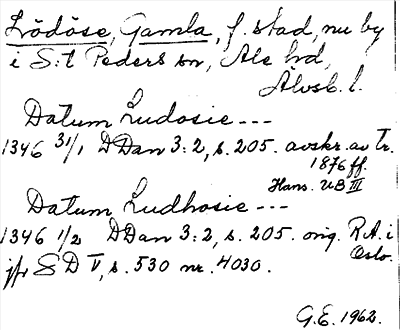 Lödöse, Gamla, f. stad, nu by
i S:t Peders sn, Ale hd,
Älvsb. l.
Datum Ludosie ---
1346 31/1 DDan 3:2, s. 205. avskr. av Tr.
1876 ff.
Hans. UB III
Datum Ludhosie ---
1346 1/2 DDan 3:2, s. 205. orig. R.A. i
Oslo.
jfr SD V, s. 530 nr. 4030.
G.E. 1962.